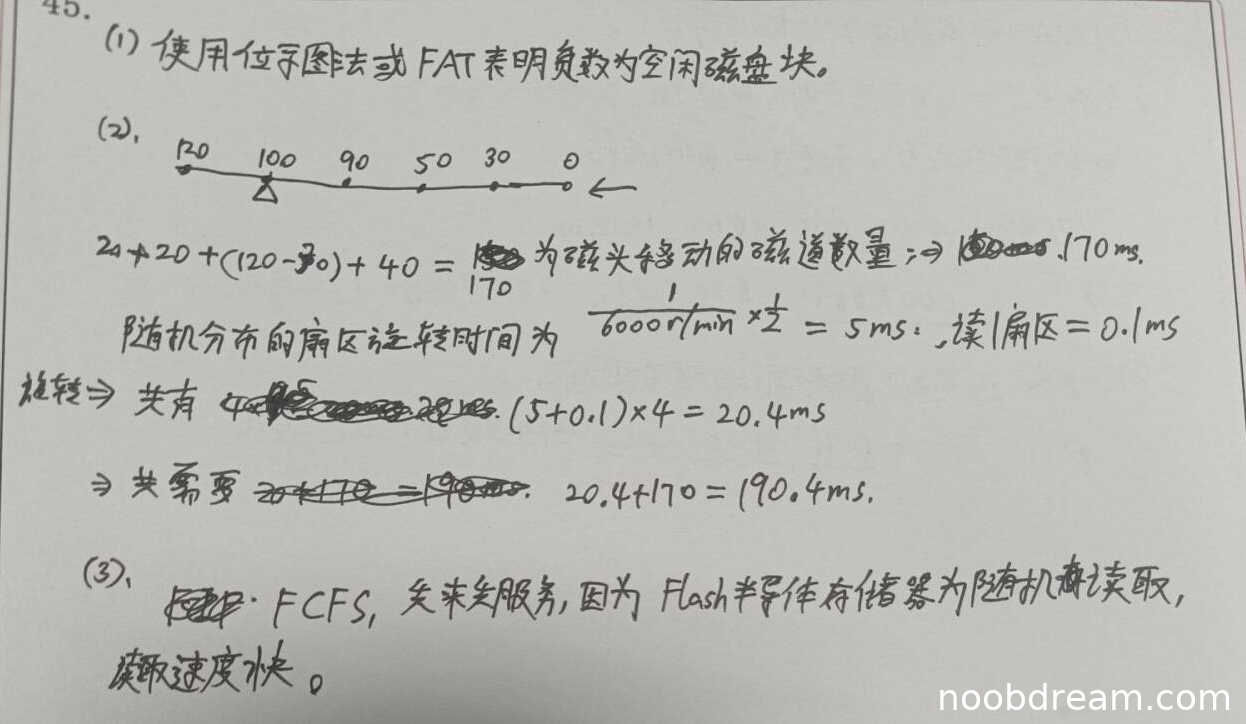 45.
(1) 使用位示图法或FAT表明负数为空闲磁盘块。
(2).
120 100 90 50 30 0
20+20+(120-30)+40= 170 为磁头移动的磁道数量;⇒ 170ms.
随机分布的扇区旋转时间为 1/6000r/min × 1/2 = 5ms. ,读1扇区=0.1ms
旋转⇒ 共有 (5+0.1)×4=20.4ms
⇒ 共需要 20.4+170=190.4ms.
(3).
FCFS, 先来先服务,因为 Flash半导体存储器为随机读取,
读取速度快。
noobdream.com